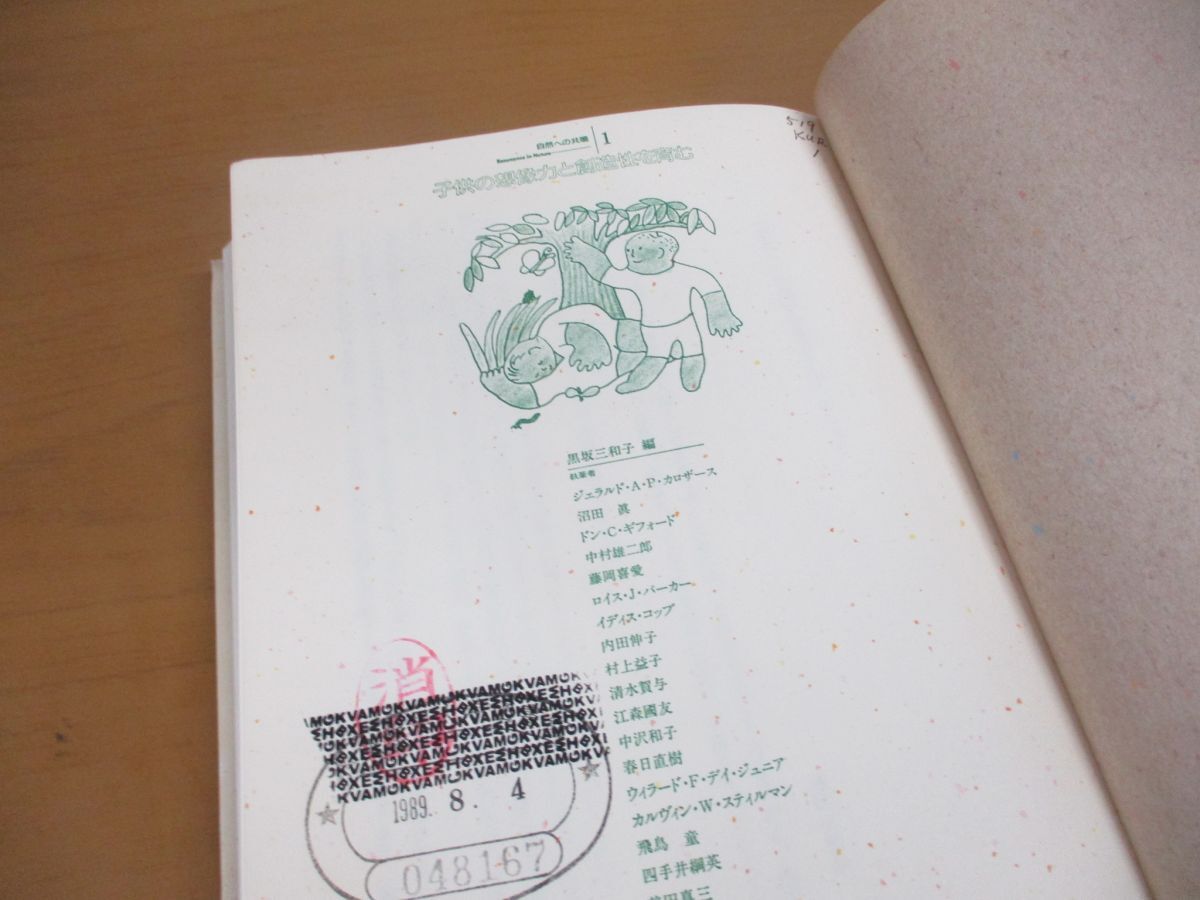 519
KUR
1
自然への共鳴 1
Resonance in Nature
子供の想像力と創造性を育む
黒坂三和子 編
執筆者
ジェラルド・A・P・カロザース
沼田 眞
ドン・C・ギフォード
中村雄二郎
藤岡喜愛
ロイス・J・バーカー
イディス・コッブ
内田伸子
村上益子
清水賀与
江森國友
中沢和子
春日直樹
ウィラード・F・デイ・ジュニア
カルヴィン・W・スティルマン
飛鳥 童
四手井綱英
前田真三
消
1989. 8. 4
048167